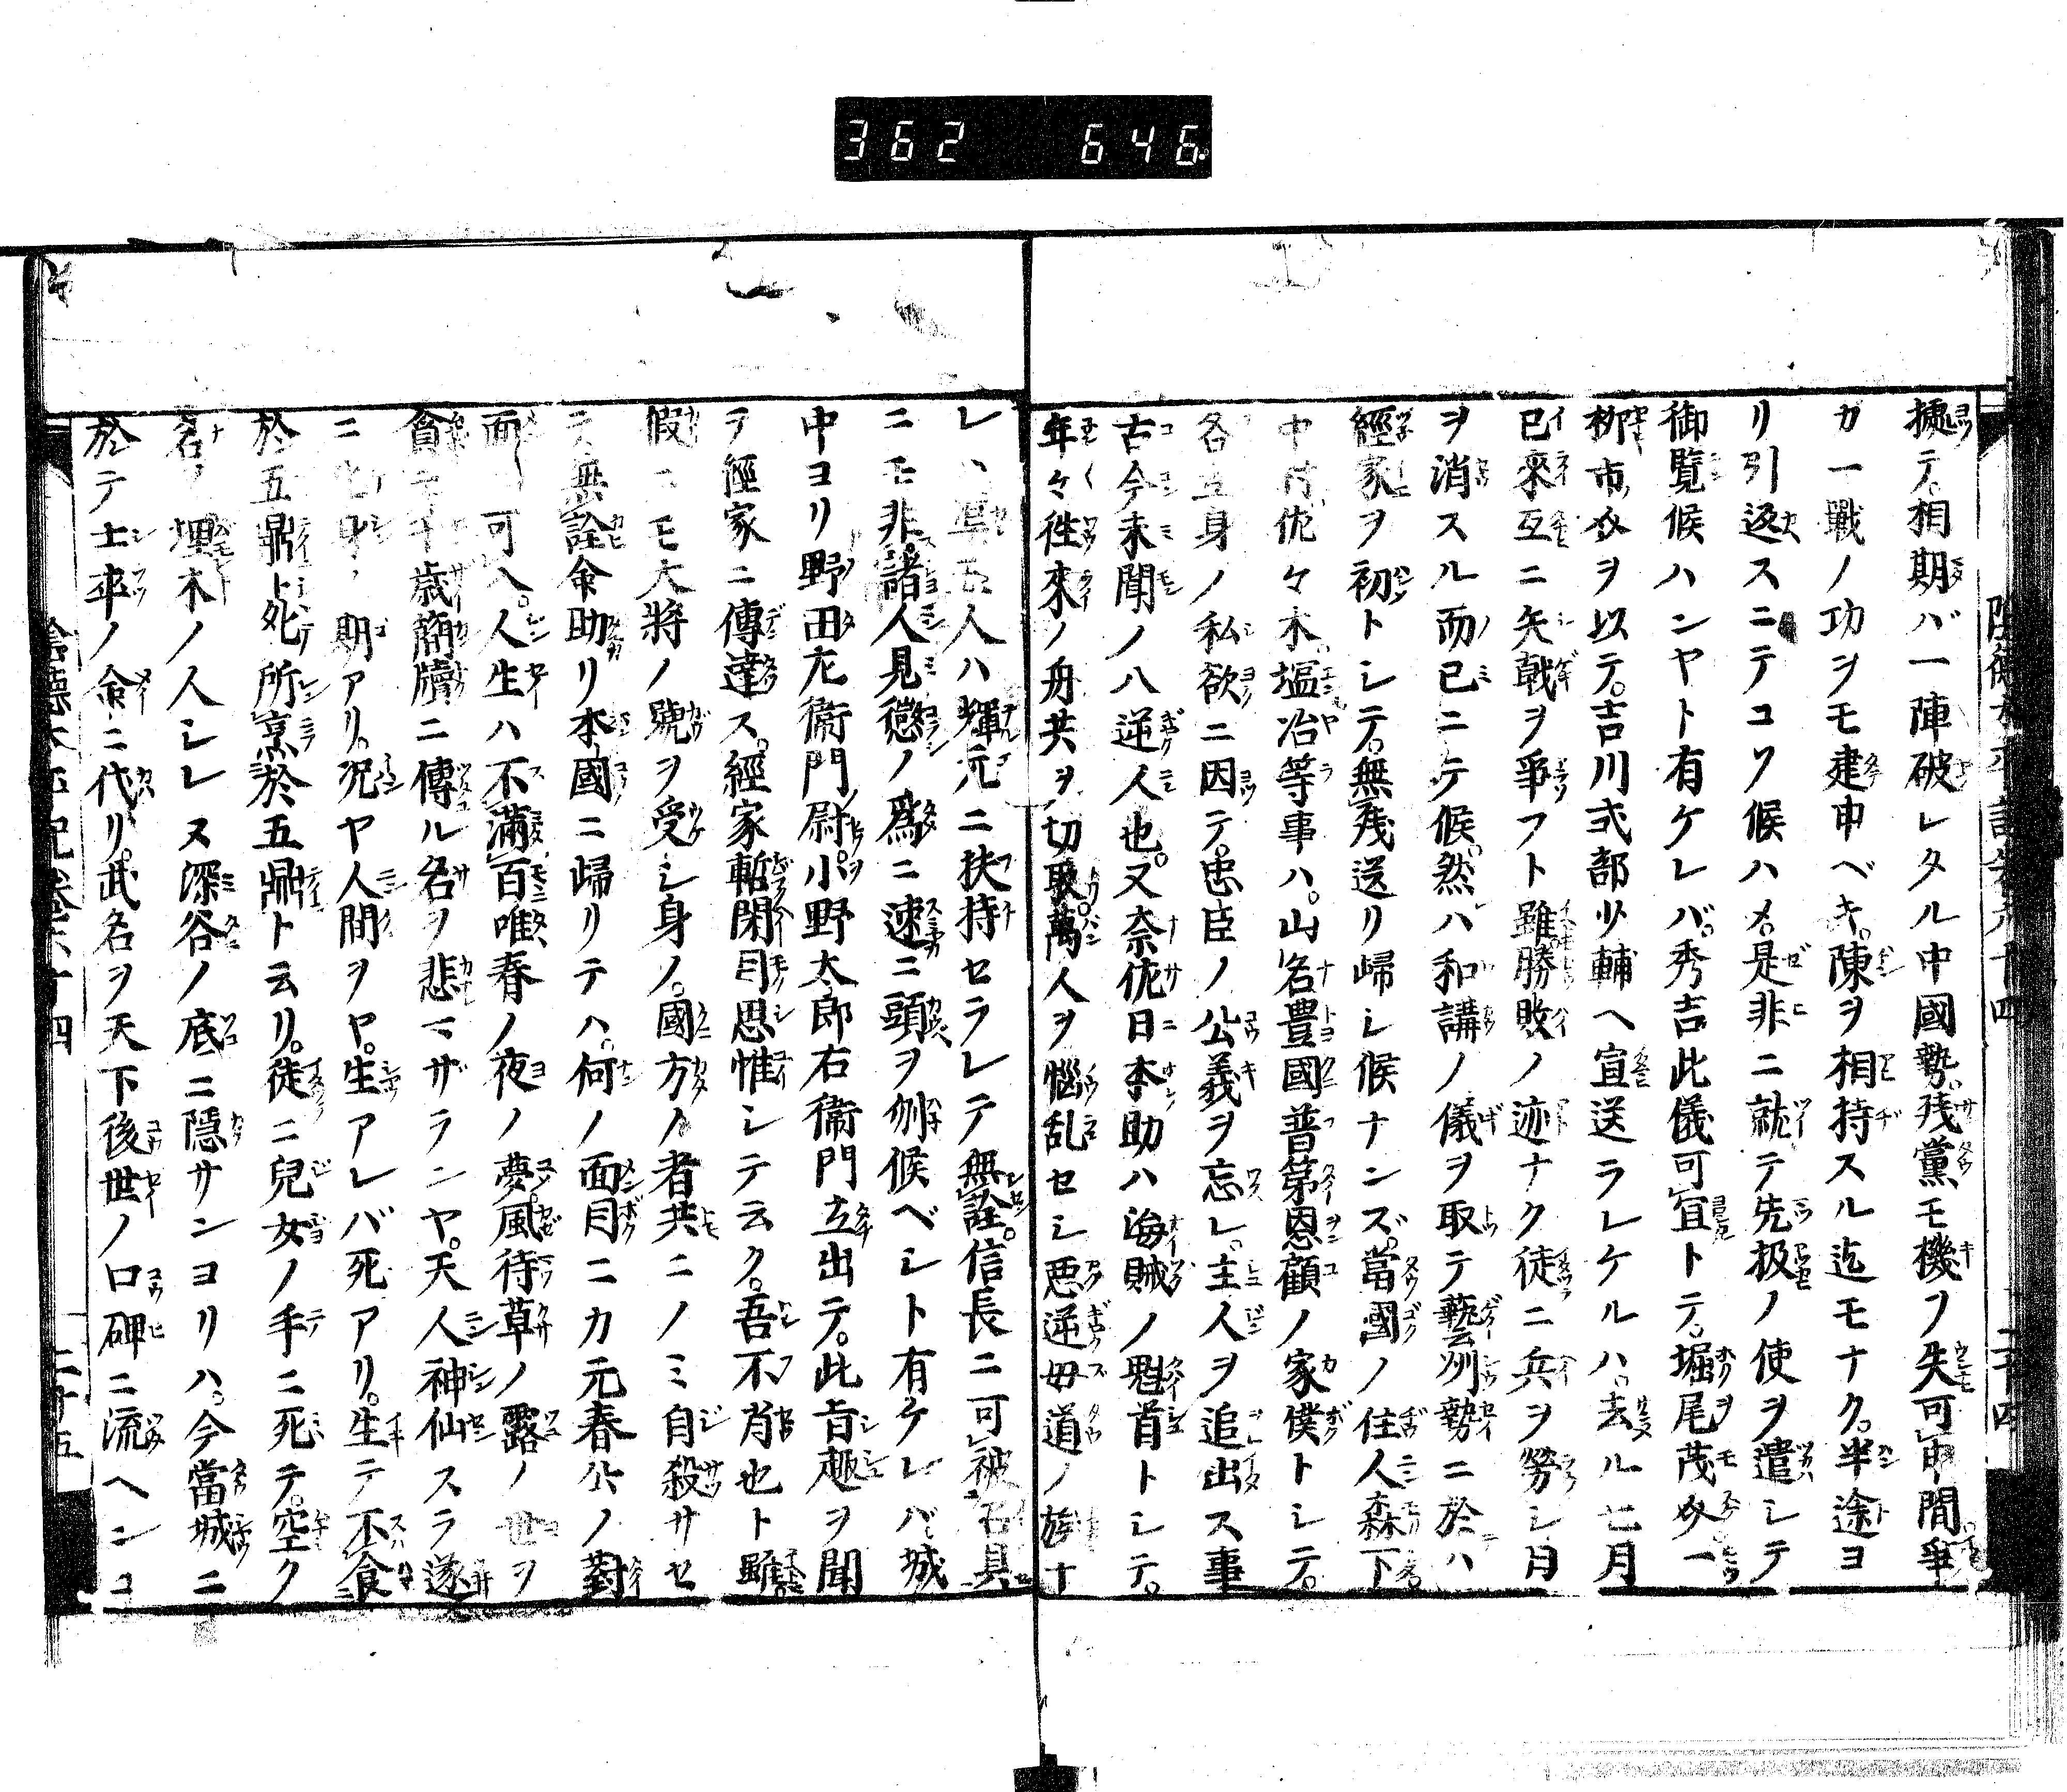 362 646
據テ相期バ一陣破レタル中國勢殘黨モ機ヲ失可申間爭
ガ一戰ノ功ヲモ建申ベキ。陳ヲ相持スル迄モナク。半途ヨ
リ引返スニテコソ候ハメ。是非ニ就テ先扱ノ使ヲ遣シテ
御覽候ハンヤト有ケレバ。秀吉此儀可宜トテ。堀尾茂介一
柳市介ヲ以テ。吉川式部少輔ヘ宣送ラレケルハ。去ル七月
已來互ニ矢戟ヲ爭フト雖勝敗ノ迹ナク徒ニ兵ヲ勞シ日
ヲ消スル而已ニテ候。然ハ和講ノ儀ヲ取テ藝州勢ニ於ハ
經家ヲ初トシテ。無殘送リ歸シ候ナンズ。當國ノ住人森下
中村佐々木。塩冶等事ハ。山名豊國普第恩顧ノ家僕トシテ。
各立身ノ私欲ニ因テ。忠臣ノ公義ヲ忘レ。主人ヲ追出ス事
古今未聞ノ八逆人也。又奈佐日本助ハ海賊ノ魁首トシテ。
年々徃來ノ舟共ヲ切取。萬人ヲ惱乱セシ悪逆毋道ノ族ナ
レハ是五人ハ輝元ニ扶持セラレテ無詮。信長ニ可被召具
ニモ非諸人見懲ノ爲ニ速ニ頭ヲ刎候ベシト有ケレバ城
中ヨリ野田左衞門尉。小野太郎右衞門立出テ。此旨趣ヲ聞
テ經家ニ傳達ス。經家暫閑目思惟シテ云ク。吾不肖也ト雖。
假ニモ大將ノ號ヲ受シ身ノ。國方ノ者共ニノミ自殺サセ
テ無詮命助リ本國ニ歸リテハ。何ノ面目ニカ元春公ノ對
面 可ハ。人生ハ不滿百唯春ノ夜ノ夢。風待草ノ露ノ世ヲ
貪テ千歳簡牘ニ傳ル名ヲ悲マザランヤ。天人神仙スラ遂
ニ 期アリ。况ヤ人間ヲヤ。生アレバ死アリ。生テ不食
於五鼎ト死所烹於五鼎ト云リ。徒ニ兒女ノ手ニ死テ。空ク
名ヲ埋木ノ人シレヌ深谷ノ底ニ隱サンヨリハ。今當城ニ
於テ士卒ノ命ニ代リ。武名ヲ天下後世ノ口碑ニ流ヘンコ
陰德太平記卷六十四 二十五